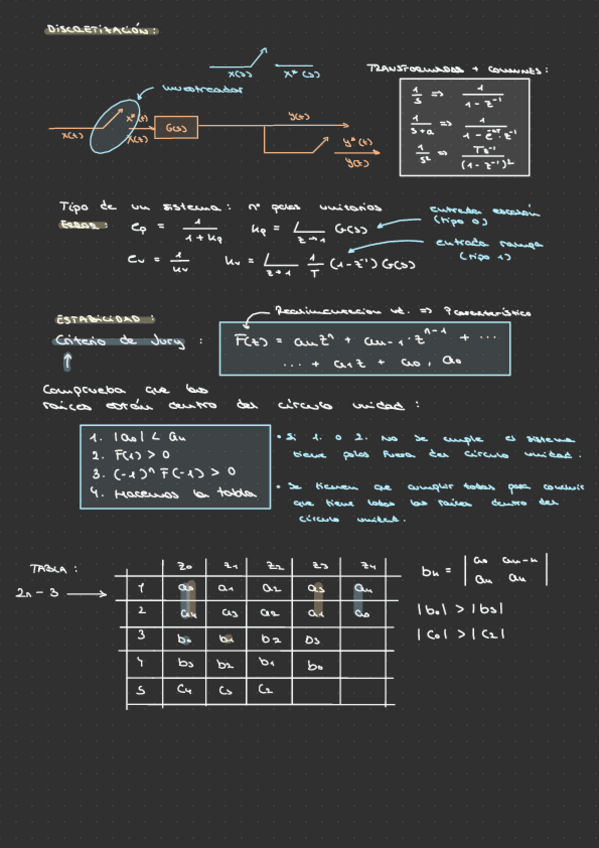 DISCRETIZACIÓN:
X(s) X*(s)
TRANSFORMADAS + COMUNES:
muestreador
X(t) X*(t) X(t) G(s) Y(t) Y*(t) Y(t)
1/s => 1/(1 - z⁻¹)
1/(s+a) => 1/(1 - e⁻ᵃᵀ·z⁻¹)
1/s² => Tz⁻¹/(1 - z⁻¹)²
Tipo de un sistema: nº polos unitarios
entrada escalón (tipo 0)
ep = 1/(1 + kp) kp = L z→1 G(s)
entrada rampa (tipo 1)
ev = 1/kv kv = L z→1 1/T (1-z⁻¹) G(s)
ESTABILIDAD:
Realimentacion ut. => P característico
Criterio de Jury :
F(z) = an zⁿ + an-1 · zⁿ⁻¹ + ...
... + a1z + a0, a0
Comprueba que las
raíces están dentro del círculo unidad:
1. |a0| < an
2. F(1) > 0
3. (-1)ⁿ F(-1) > 0
4. Hacemos la tabla
• Si 1. o 2. no se cumple el sistema
tiene polos fuera del círculo unidad.
• Se tienen que cumplir todas para concluir
que tiene todas las raíces dentro del
círculo unidad.
TABLA:
2n - 3
z0 z1 z2 z3 z4
1 a0 a1 a2 a3 a4
2 a4 a3 a2 a1 a0
3 b0 b1 b2 b3
4 b3 b2 b1 b0
5 C4 C3 C2
bk = | a0 an-k |
| an ak |
|b0| > |b3|
|c0| > |c2|